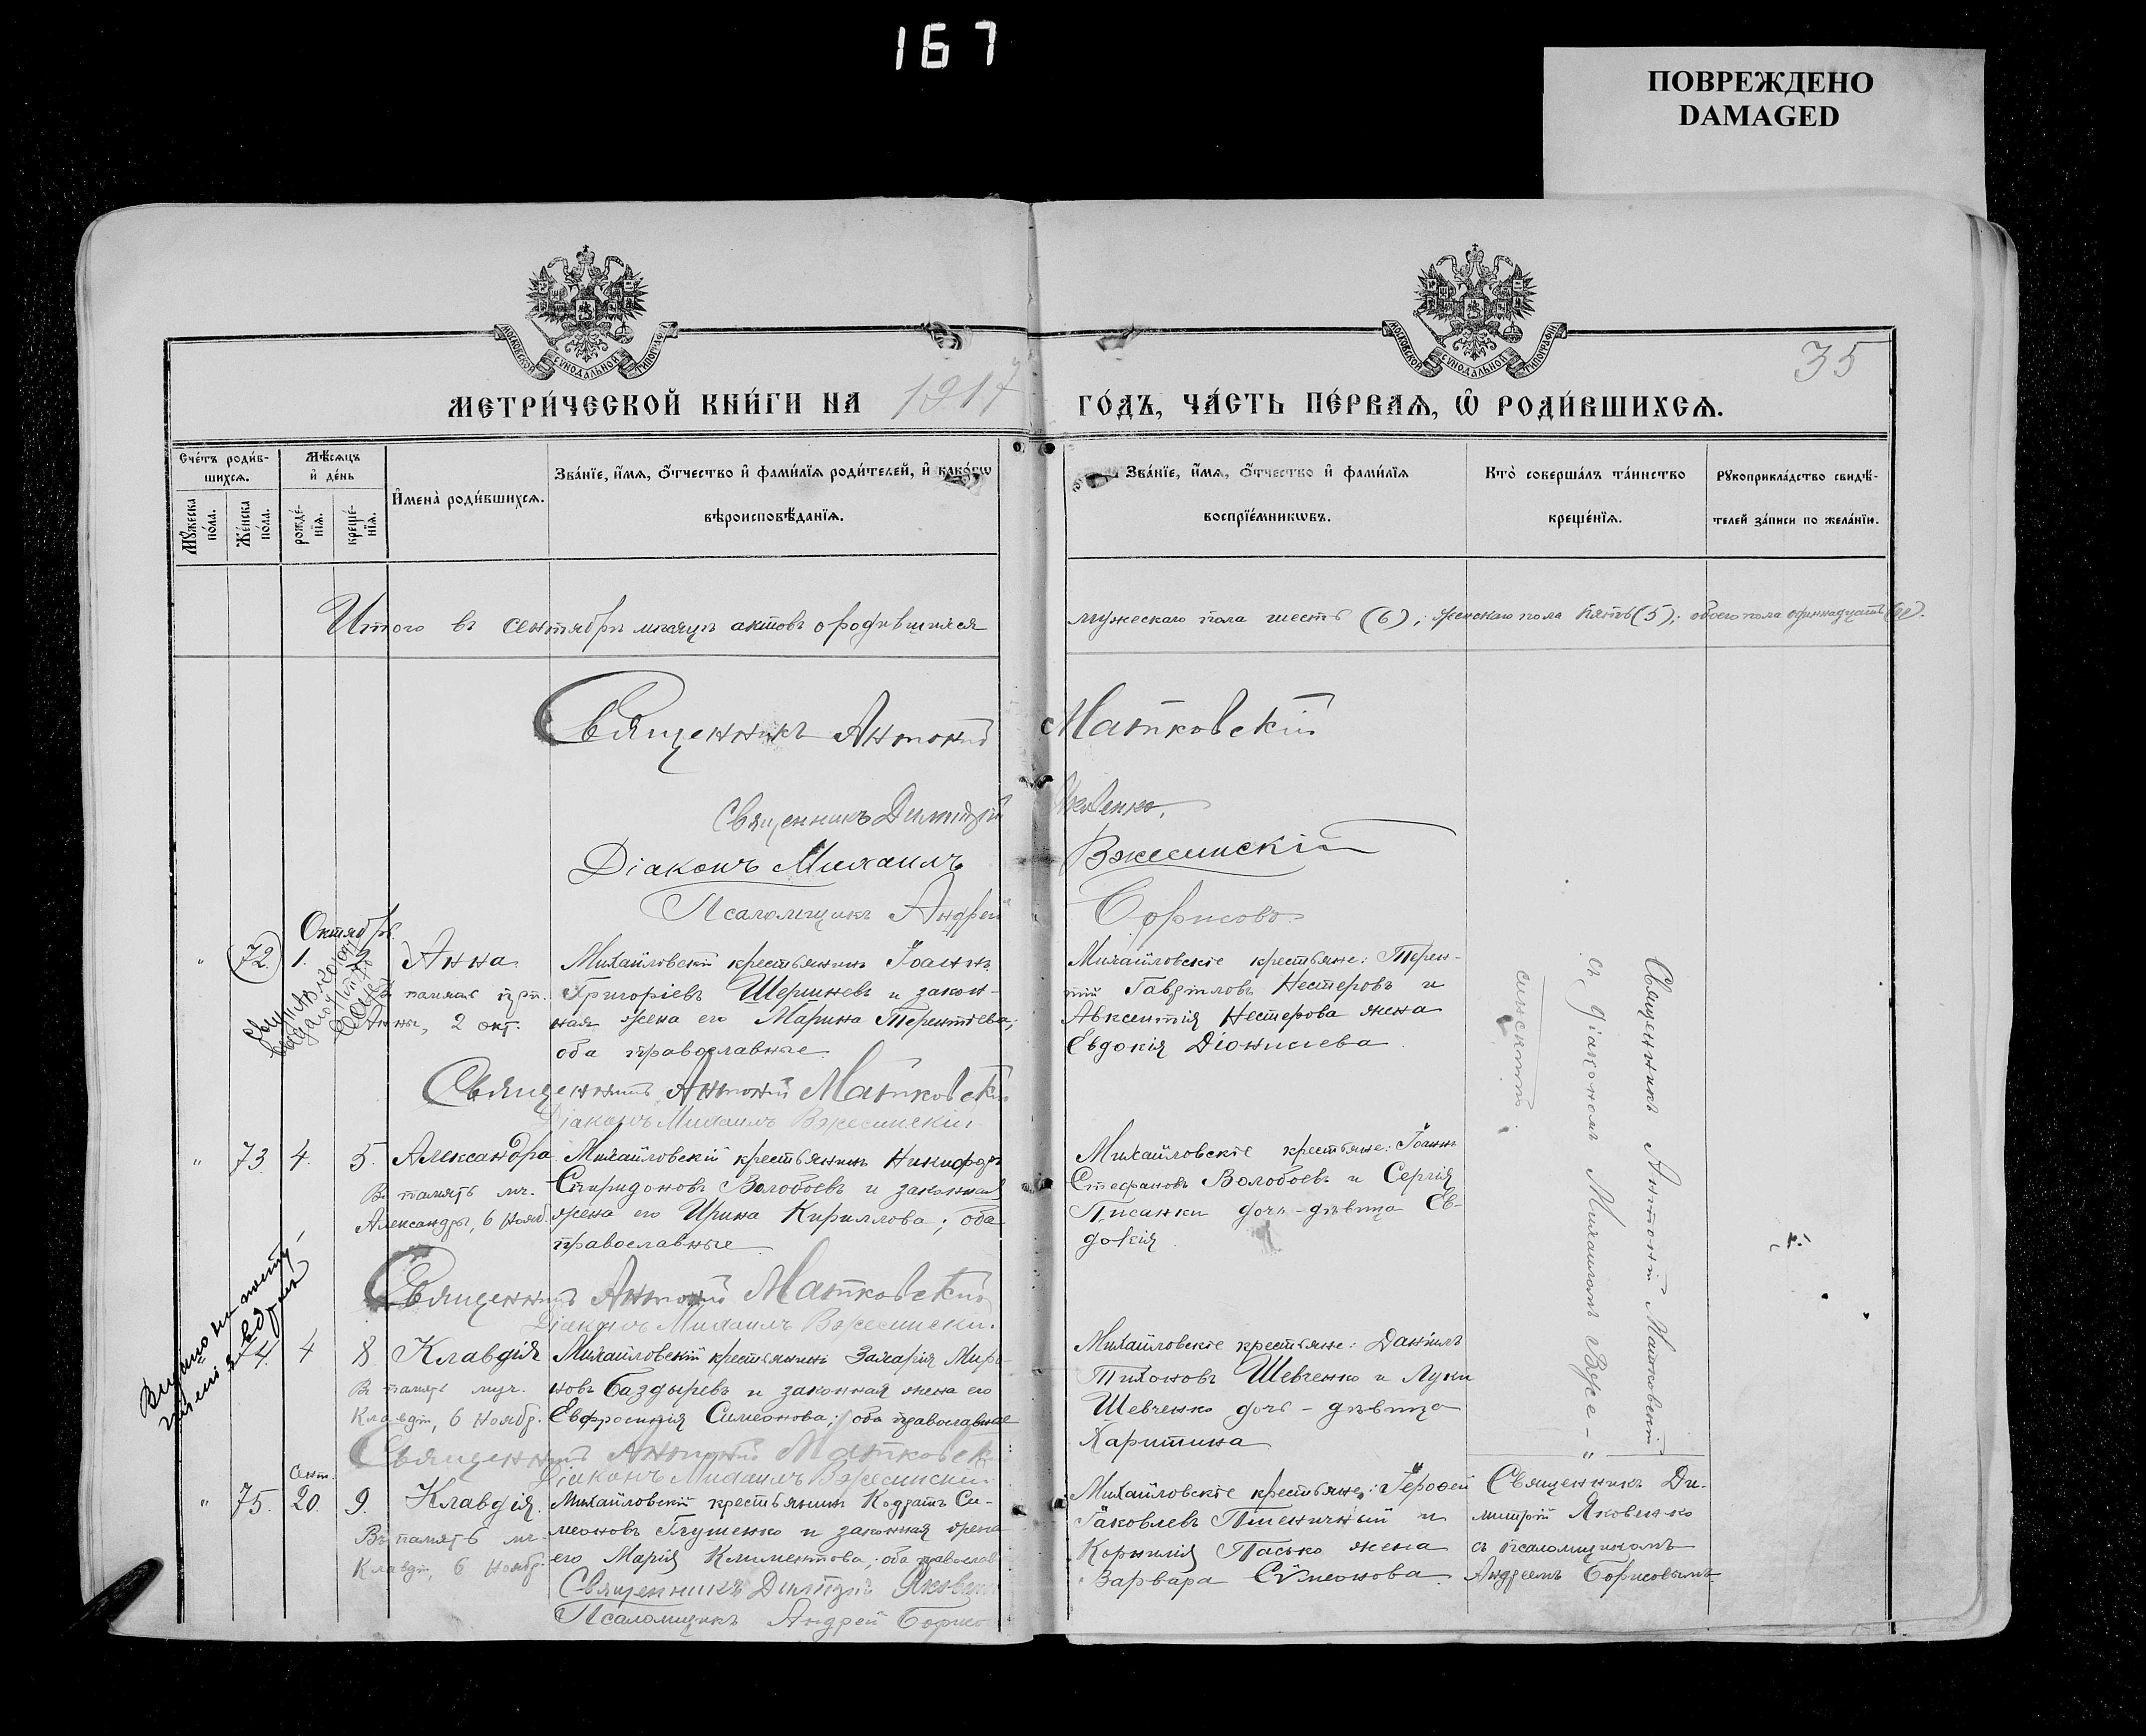 167
ПОВРЕЖДЕНО
DAMAGED
МОСКОВСКОЙ СѴНОДАЛЬНОЙ ТИПОГРАФІИ
МОСКОВСКОЙ СѴНОДАЛЬНОЙ ТИПОГРАФІИ
35
МЕТРИ́ЧЕСКОЙ КНИ́ГИ НА 1917 ГО́ДЪ, ЧА́СТЬ ПЕ́РВАѦ, Ѡ҆ РОДИ́ВШИХСѦ.
Сче́тъ роди́в-
шихсѧ.
Мꙋ́жеска по́ла.
Же́нска по́ла.
Мѣ́сѧцъ
и҆ де́нь
рожде́-
нїѧ.
креще́-
нїѧ.
И҆мена̀ роди́вшихсѧ.
Зва́нїе, и҆́мѧ, ѻ҆́тчество и҆ фами́лїѧ роди́телей, и҆ како́гѡ
вѣроисповѣ́данїѧ.
Зва́нїе, и҆́мѧ, ѻ҆́тчество и҆ фами́лїѧ
воспрїе́мникѡвъ.
Кто̀ соверша́лъ та́инство
креще́нїѧ.
Рꙋкоприкла́дство свидѣ́-
телей за́писи по жела́нїю.
Итого въ сентябрѣ мѣсяцѣ актовъ о родившихся мужескаго пола шесть (6); женскаго пола пять (5); обоего пола одиннадцать
Священникъ Антоній Матковскій
Священникъ Димитрій Яковенко.
Діаконъ Михаилъ Вжесинскій
Псаломщикъ Андрей Борисовъ
Октябрь.
" 72. 1. Анна
Анны, 2 окт.
Михайловскій крестьянинъ Іоаннъ
Григоріевъ Шершневъ и закон-
ная жена его Марина Терентіева;
оба православные
Михайловскіе крестьяне: Терен-
тій Гавріиловъ Нестеровъ и
Авксентія Нестерова жена
Евдокія Діонисіева.
Священникъ Антоній Матковскій
съ діакономъ Михаиломъ Вже-
синскимъ.
Священникъ Антоній Матковскій
Діаконъ Михаилъ Вжесинскій
" 73 4. 5. Александра
Въ память мч.
Александры, 6 нояб.
Михайловскій крестьянинъ Никифоръ
Спиридоновъ Волобоевъ и законная
жена его Ирина Кириллова; оба
православные.
Михайловскіе крестьяне: Іоаннъ
Стефановъ Волобоевъ и Сергія
Писанки дочь-дѣвица Ев-
докія.
Священникъ Антоній Матковскій
Діаконъ Михаилъ Вжесинскій.
4 8 Клавдія
Въ память муч.
Клавдіи, 6 ноябр.
Михайловскій крестьянинъ Захарія Миро-
новъ Баздыревъ и законная жена его
Евфросинія Симеонова; оба православные
Михайловскіе крестьяне: Даніилъ
Тихоновъ Шевченко и Луки
Шевченко дочь-дѣвица
Харитина
"
Священникъ Антоній Матковскій
Діаконъ Михаилъ Вжесинскій
Сент.
" 75. 20. 9. Клавдія.
Въ память мч.
Клавдіи, 6 ноябр.
Михайловскій крестьянинъ Кодратъ Си-
меоновъ Глушенко и законная жена
его Марія Климентова; оба православ
Михайловскіе крестьяне: Іерофей
Іаковлевъ Пшеничный и
Корнилія Пасько жена
Варвара Сѵмеонова.
Священникъ Ди-
митрій Яковенко
съ псаломщикомъ
Андреемъ Борисовымъ
Священникъ Димитрій Яковен
Псаломщикъ Андрей Борисо